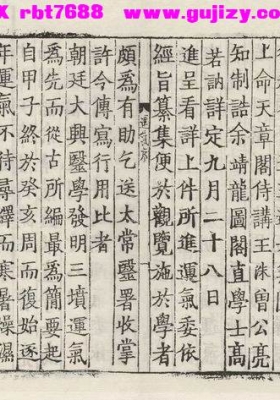 X rbt7688 www.gujizy.com
上命天章閣侍講王洙曾公亮
知制誥余靖龍圖閣直學士高
若訥詳定九月二十八日
進呈看詳上件所進運氣委依
經旨纂集便於觀覽施於學者
頗為有助乞送太常毉署收掌
許今傳寫行用比者
朝廷大興毉學發明三墳運氣
為先而從古所編最為簡要起
自甲子終於癸亥周而復始逐
年運氣不待尋繹而寒暑燥濕